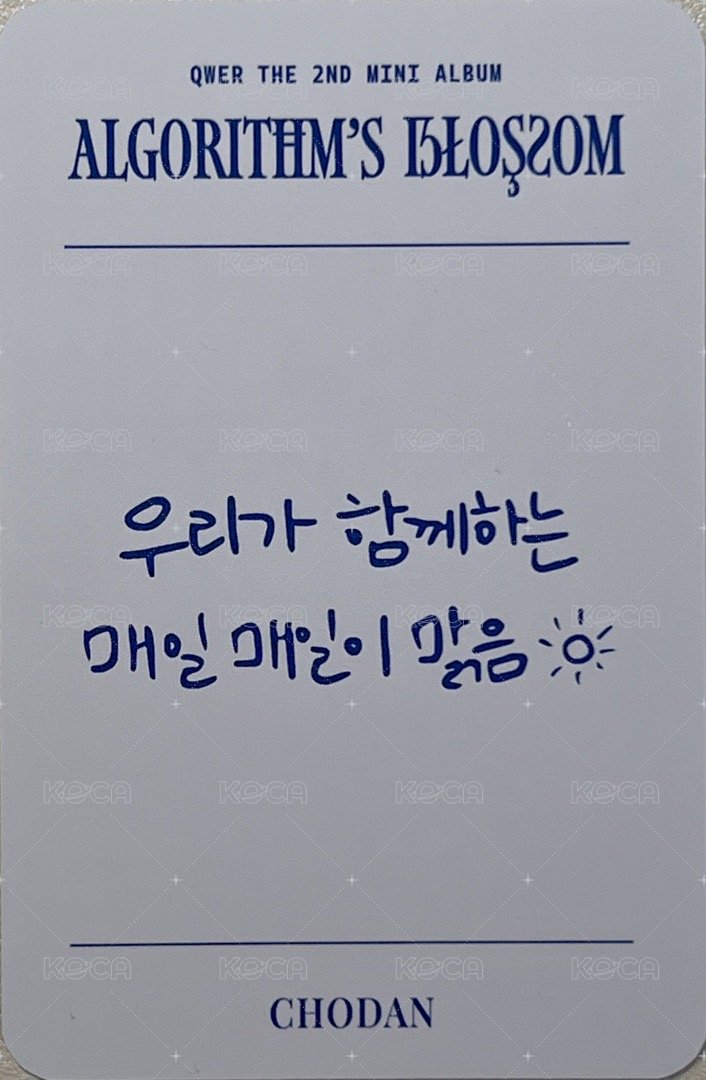 QWER THE 2ND MINI ALBUM
ALGORITHM'S BLOSSOM
우리가 함께하는
매일 매일이 맑음
CHODAN
KOCA